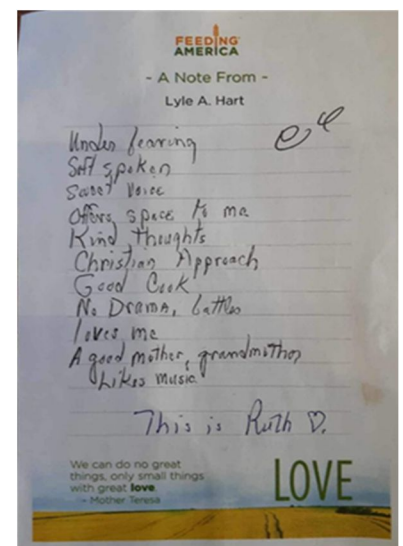 FEEDING
AMERICA
- A Note From -
Lyle A. Hart
Under bearing
Soft spoken
Sweet Voice
Offers space to me
Kind Thoughts
Christian Approach
Good Cook
No Drama, battles
loves me
A good mother, grandmother
Likes music
This is Ruth ♡.
We can do no great
things, only small things
with great love.
- Mother Teresa
LOVE